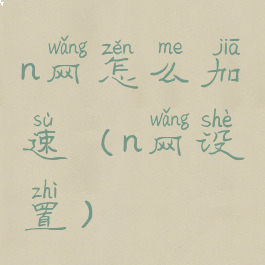 wǎng zěn me jiā
n网怎么加
sù wǎng shè
速（n网设
zhì
置）